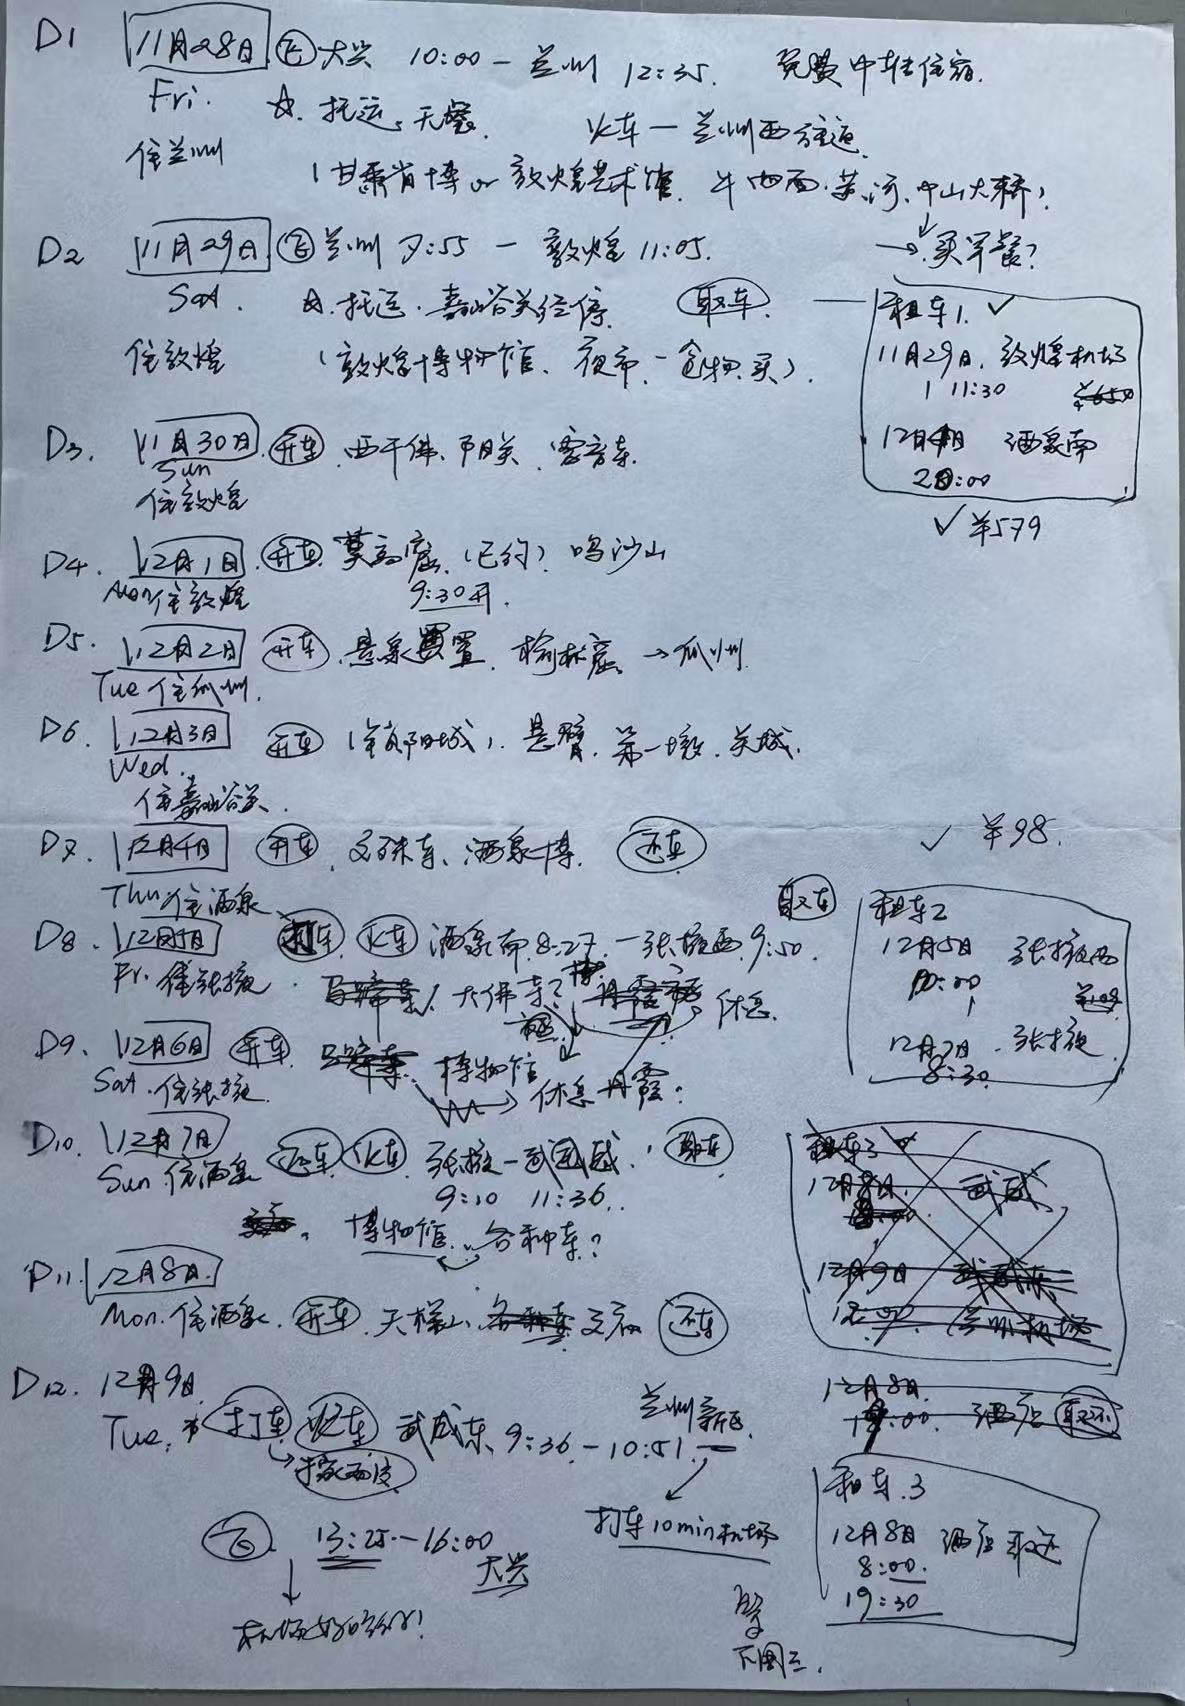 D1 11月28日 飞 大兴 10:00 — 兰州 12:35. 免费中转住宿.
Fri. ☆. 托运. 无餐. 火车 — 兰州西往返.
住兰州
(甘肃省博 or 敦煌艺术馆. 牛肉面. 黄河. 中山大桥).
→ 买早餐?
D2 11月29日 飞 兰州 7:55 — 敦煌 11:05.
Sat. ☆. 托运. 嘉峪关经停. 取车.
住敦煌 (敦煌博物馆、夜市、食物买).
租车1. ✓
11月29日. 敦煌机场
11:30
酒泉南
20:00
✓ ¥579
D3. 11月30日 开车. 西千佛. 阳关.
Sun
住敦煌
D4. 12月1日. 开车. 莫高窟. (已约) 鸣沙山
Mon 住敦煌 9:30开.
D5. 12月2日 开车. 悬泉置. 榆林窟. → 瓜州.
Tue 住瓜州.
D6. 12月3日 开车 (锁阳城). 悬臂. 第一墩. 关城.
Wed.
住嘉峪关.
D7. 12月4日 开车. 文殊寺. 酒泉博. 还车
✓ ¥98.
Thu. 住酒泉
D8. 12月5日 打车 火车 酒泉南 8:27 — 张掖西 9:50 取车
Fri. 住张掖. 马蹄寺 / 大佛寺? 丹霞 休息.
租车2
12月5日 张掖西
10:00
12月7日. 张掖
8:30
D9. 12月6日 开车 马蹄寺. 博物馆
Sat. 住张掖. 休息 丹霞?
D10. 12月7日 还车 火车 张掖 — 武威. 取车
Sun. 住酒店 9:10 11:36.
博物馆. 各种寺?
租车3
12月8日. 武威
12月9日
兰州机场
D11. 12月8日.
Mon. 住酒店. 开车. 天梯山. 各种寺 文庙 还车
12月8日.
酒店 取还
D12. 12月9日
Tue. 打车 火车 武威东 9:36 — 10:51 — 兰州新区
打车10min机场
飞 13:25 — 16:00
大兴
租车.3
12月8日 酒店取还
8:00.
19:30
下周三.